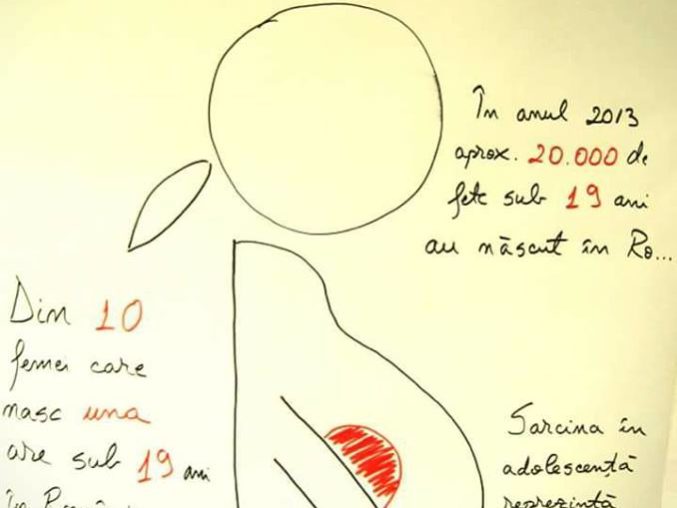 În anul 2013
aprox. 20.000 de
fete sub 19 ani
au născut în Ro...
Din 10
femei care
nasc una
are sub 19 ani
în
Sarcina în
adolescență
reprezintă